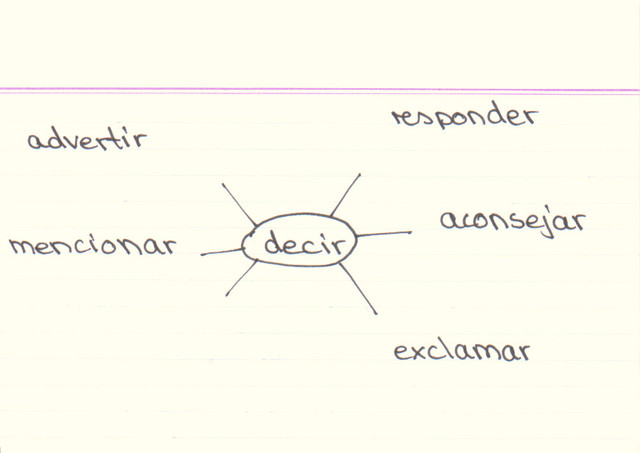 responder
advertir
aconsejar
mencionar
decir
exclamar